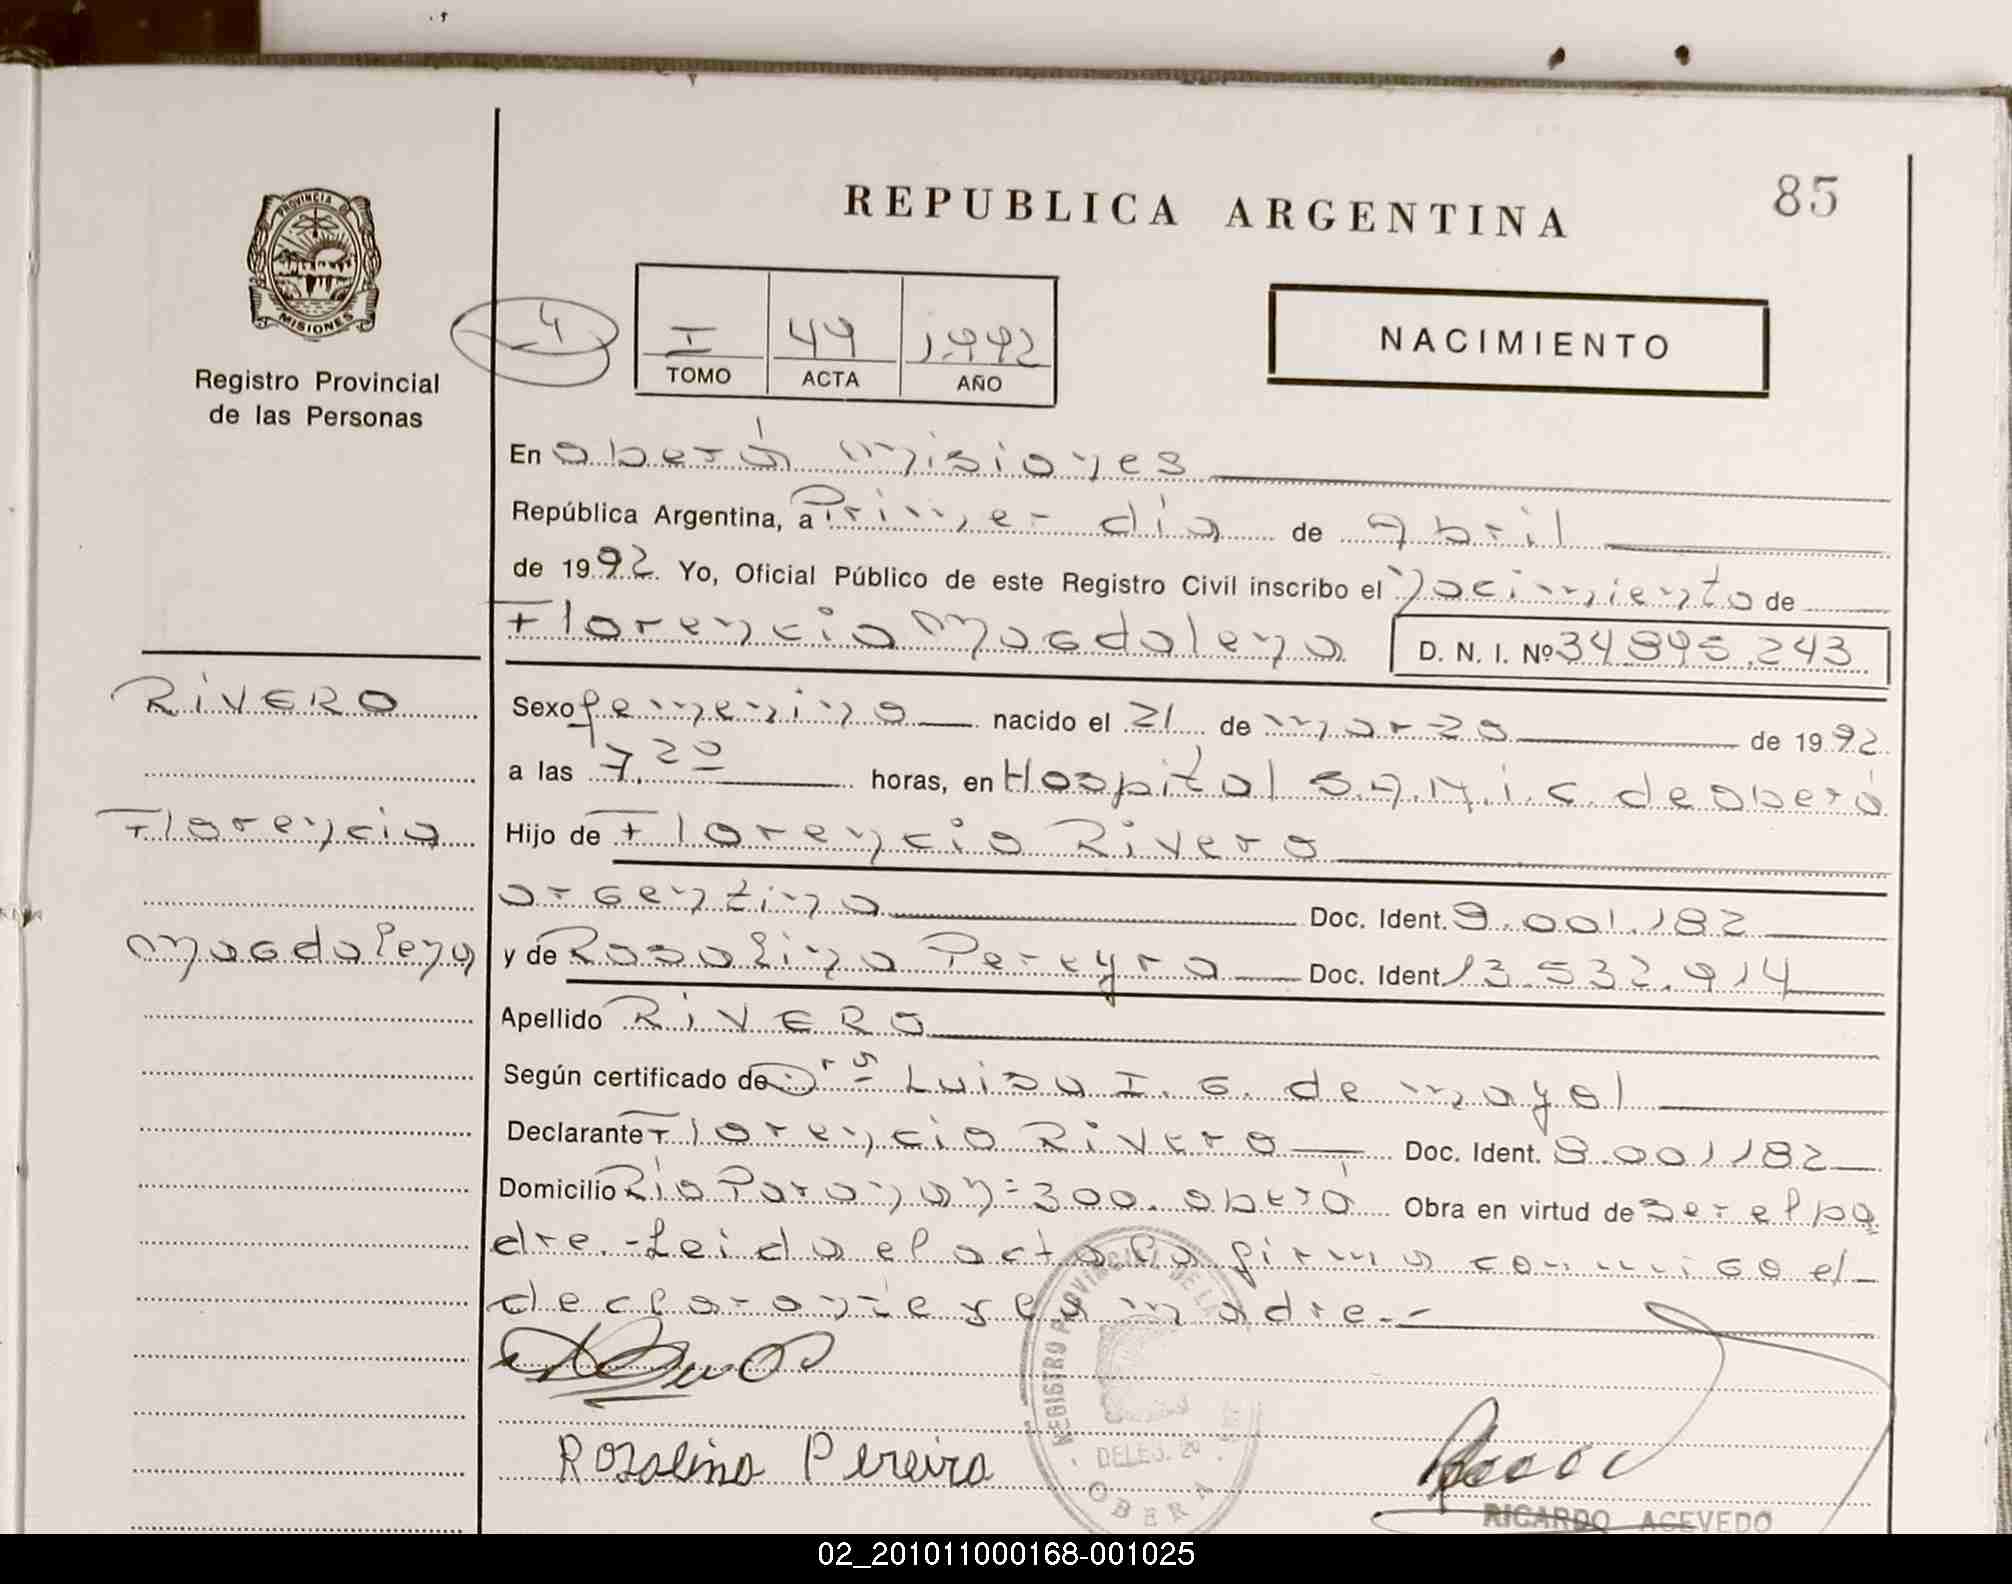 85
REPUBLICA ARGENTINA
PROVINCIA DE
MISIONES
Registro Provincial
de las Personas
4
I 49 1.992
TOMO ACTA AÑO
NACIMIENTO
En oberá misiones
República Argentina, a Primer día de Abril
de 1992. Yo, Oficial Público de este Registro Civil inscribo el nacimiento de
Florencia Magdalena D. N. I. Nº 34.895.243
RIVERO
Sexo femenino nacido el 21 de marzo de 1992.
a las 7.20 horas, en Hospital S.A.M.i.c. de oberá
Florencia
Hijo de Florencio Rivero
argentino Doc. Ident. 8.001.182
Magdalena
y de Rosalina Pereyra Doc. Ident. 13.532.914
Apellido RIVERO
Según certificado de Dra Luisa I. G. de mayol
Declarante Florencio Rivero Doc. Ident. 8.001182
Domicilio Río Paraná nº 300. oberá Obra en virtud de ser el pa
dre.- Leida el acta la firma conmigo el
declarante y la madre.-
REGISTRO PROVINCIAL DE LA
DELEG. 29
OBERA
Rozalina Pereira
RICARDO ACEVEDO
02_201011000168-001025